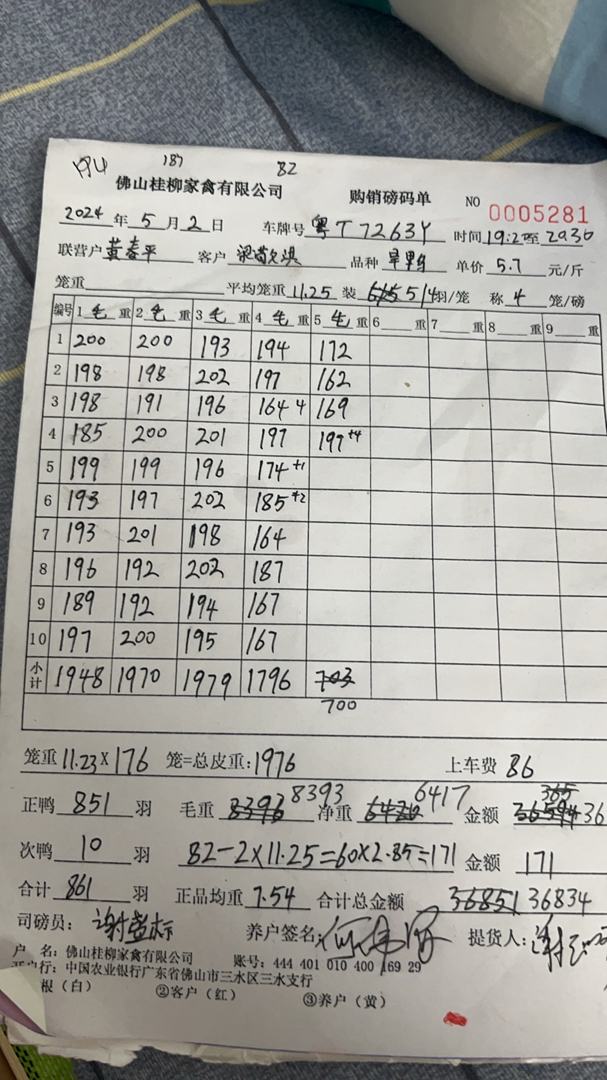 187 82
佛山桂柳家禽有限公司 购销磅码单 NO 0005281
2024 年 5 月 2 日 车牌号 粤T7263Y 时间 19:20至20:30
联营户 黄春平 客户 品种 单价 5.7 元/斤
笼重 平均笼重 11.25 装 5/4羽/笼 称 4 笼/磅
编号 1 毛 重 2 毛 重 3 毛 重 4 毛 重 5 毛 重 6 重 7 重 8 重 9 重
1 200 200 193 194 172
2 198 198 202 197 162
3 198 191 196 164 4 169
4 185 200 201 197+4
5 199 199 196 174+1
6 193 197 202 185+2
7 193 201 198 164
8 196 192 202 187
9 189 192 194 167
10 197 200 195 167
小计 1948 1970 1979 1796 703
700
笼重 11.23×176 笼=总皮重:1976 上车费 86
正鸭 851 羽 毛重 8396 8393 净重 6420 6417 金额 36594 365 36
次鸭 10 羽 82-2×11.25=60×2.85=171 金额 171
合计 861 羽 正品均重 7.54 合计总金额 36851 36834
司磅员: 养户签名: 提货人:
户 名: 佛山桂柳家禽有限公司 账号: 444 401 010 400 169 29
开户行: 中国农业银行广东省佛山市三水区三水支行
根（白） ②客户（红） ③养户（黄）